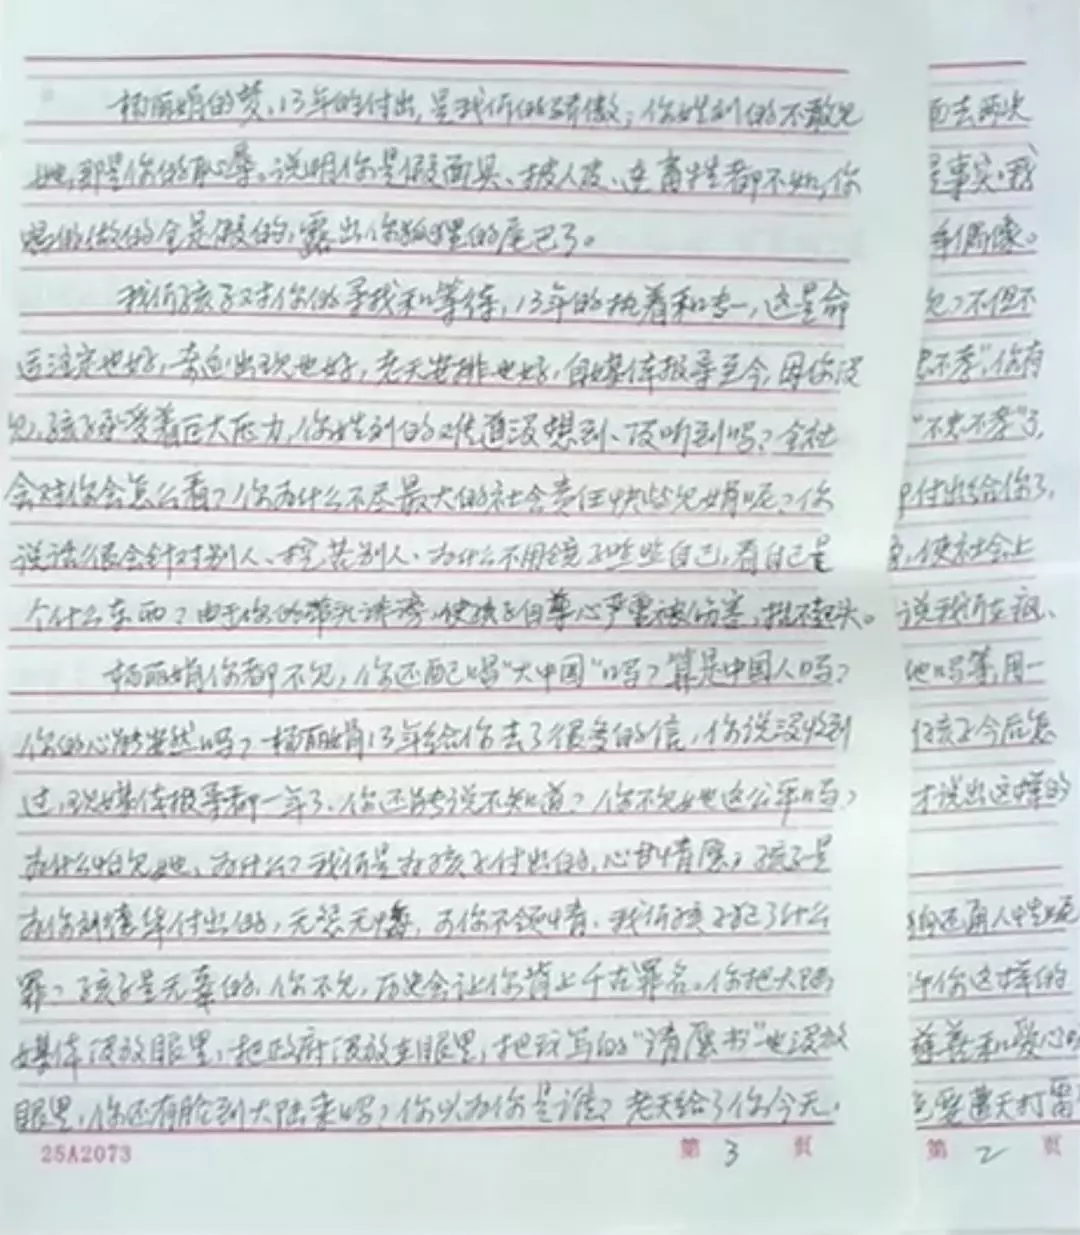 杨丽娟的梦、13年的付出,是我们的骄傲,你姓刘的不敢见
她,那是你的心辱。说明你是假面具、披人皮、连畜牲都不如,你
唱的做的全是假的,露出你狐狸的尾巴了。
我们孩子对你的寻找和等待,13年的执着和忠一,这是命
运注定也好,幸运出现也好,老天安排也好,自媒体报导至今,因你没
见,孩子承受着巨大压力,你姓刘的难道没想到、没听到吗?全社
会对你会怎么看?你为什么不尽最大的社会责任快些见娟呢?你
说话很会针对别人、挖苦别人、为什么不用镜子照照自己,看自己是
个什么东西?由于你的带头诽谤,使孩子自尊心严重被伤害,抬不起头。
杨丽娟你都不见,你还配唱“大中国”吗?算是中国人吗?
你的心能安然吗?杨丽娟13年给你去了很多的信,你说没收到
过,现媒体报导都一年了、你还能说不知道?你不见她这公平吗?
为什么怕见她,为什么?我们是为孩子付出的,心甘情愿,孩子是
为你刘德华付出的,无怨无悔,可你不领情,我们孩子犯了什么
罪?孩子是无辜的,你不见,历史会让你背上千古罪名。你把大陆
媒体没放眼里,把政府没放在眼里,把我写的“请愿书”也没放
眼里,你还有脸到大陆来吗?你以为你是谁?老天给了你今天,
25A2073
第 3 页
面去两次
是事实,我
年偶像。
见?不但不
忠不孝”,你有
“不忠不孝”了,
付出给你了,
,使社会上
说我们在疯、
她吗等,用一
孩子今后怎
才说出这样的
还有人性呢
你这样的
慈善和爱心
要遭天打雷
第 2 页